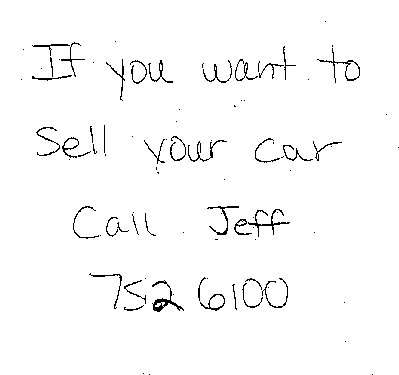 If you want to
Sell your car
Call Jeff
752 6100